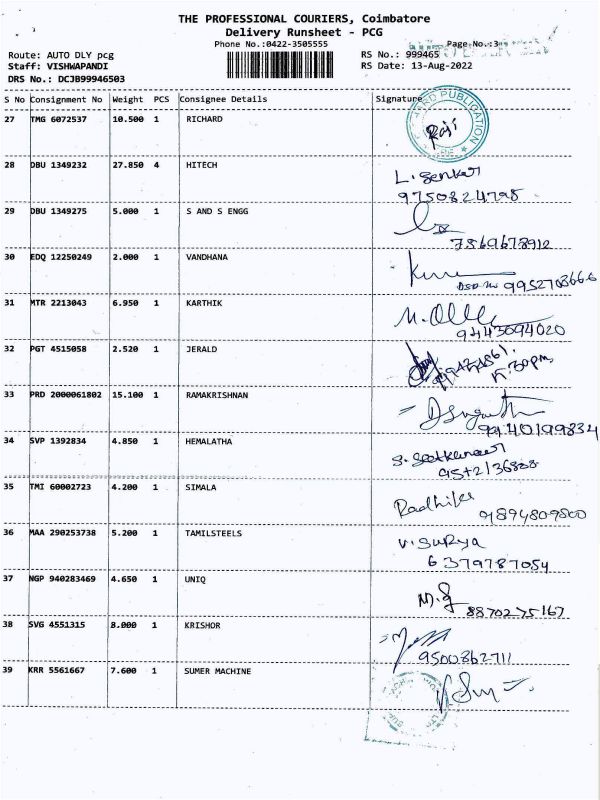 THE PROFESSIONAL COURIERS, Coimbatore
Delivery Runsheet - PCG
Phone No.:0422-3505555
Page No.:3
Route: AUTO DLY pcg
RS No.: 999465
Staff: VISHWAPANDI
RS Date: 13-Aug-2022
DRS No.: DCJB99946503
S No Consignment No Weight PCS Consignee Details Signature
27 TMG 6072537 10.500 1 RICHARD
PUBLICATION
Raji
28 DBU 1349232 27.850 4 HITECH
L. Senkar
9750824798
29 DBU 1349275 5.000 1 S AND S ENGG
7869678912
30 EDQ 12250249 2.000 1 VANDHANA
31 MTR 2213043 6.950 1 KARTHIK
9443094020
32 PGT 4515058 2.520 1 JERALD
33 PRD 2000061802 15.100 1 RAMAKRISHNAN
9440199834
34 SVP 1392834 4.850 1 HEMALATHA
35 TMI 60002723 4.200 1 SIMALA
Radhika
9894809800
36 MAA 290253738 5.200 1 TAMILSTEELS
V. SURYA
6379787054
37 NGP 940283469 4.650 1 UNIQ
8870275167
38 SVG 4551315 8.000 1 KRISHOR
9500862711
39 KRR 5561667 7.600 1 SUMER MACHINE